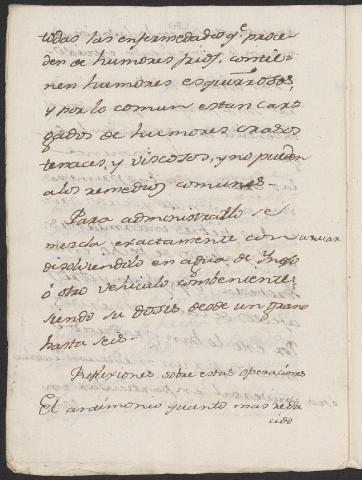 todas las enfermedades q.e proce
den de humores frios, contie
nen humores esquirrosos,
y por lo comun estan car
gados de humores crasos
tenaces, y viscosos, y no puden
a los remedios comunes-
Para administrallo se
mezcla exactamente con azucar
disolviendolo en agua de
ó otro vehiculo combeniente,
siendo su dosis desde un grano
hasta seis-
Reflexiones sobre estas operaciones
El antimonio quanto mas redu
cido